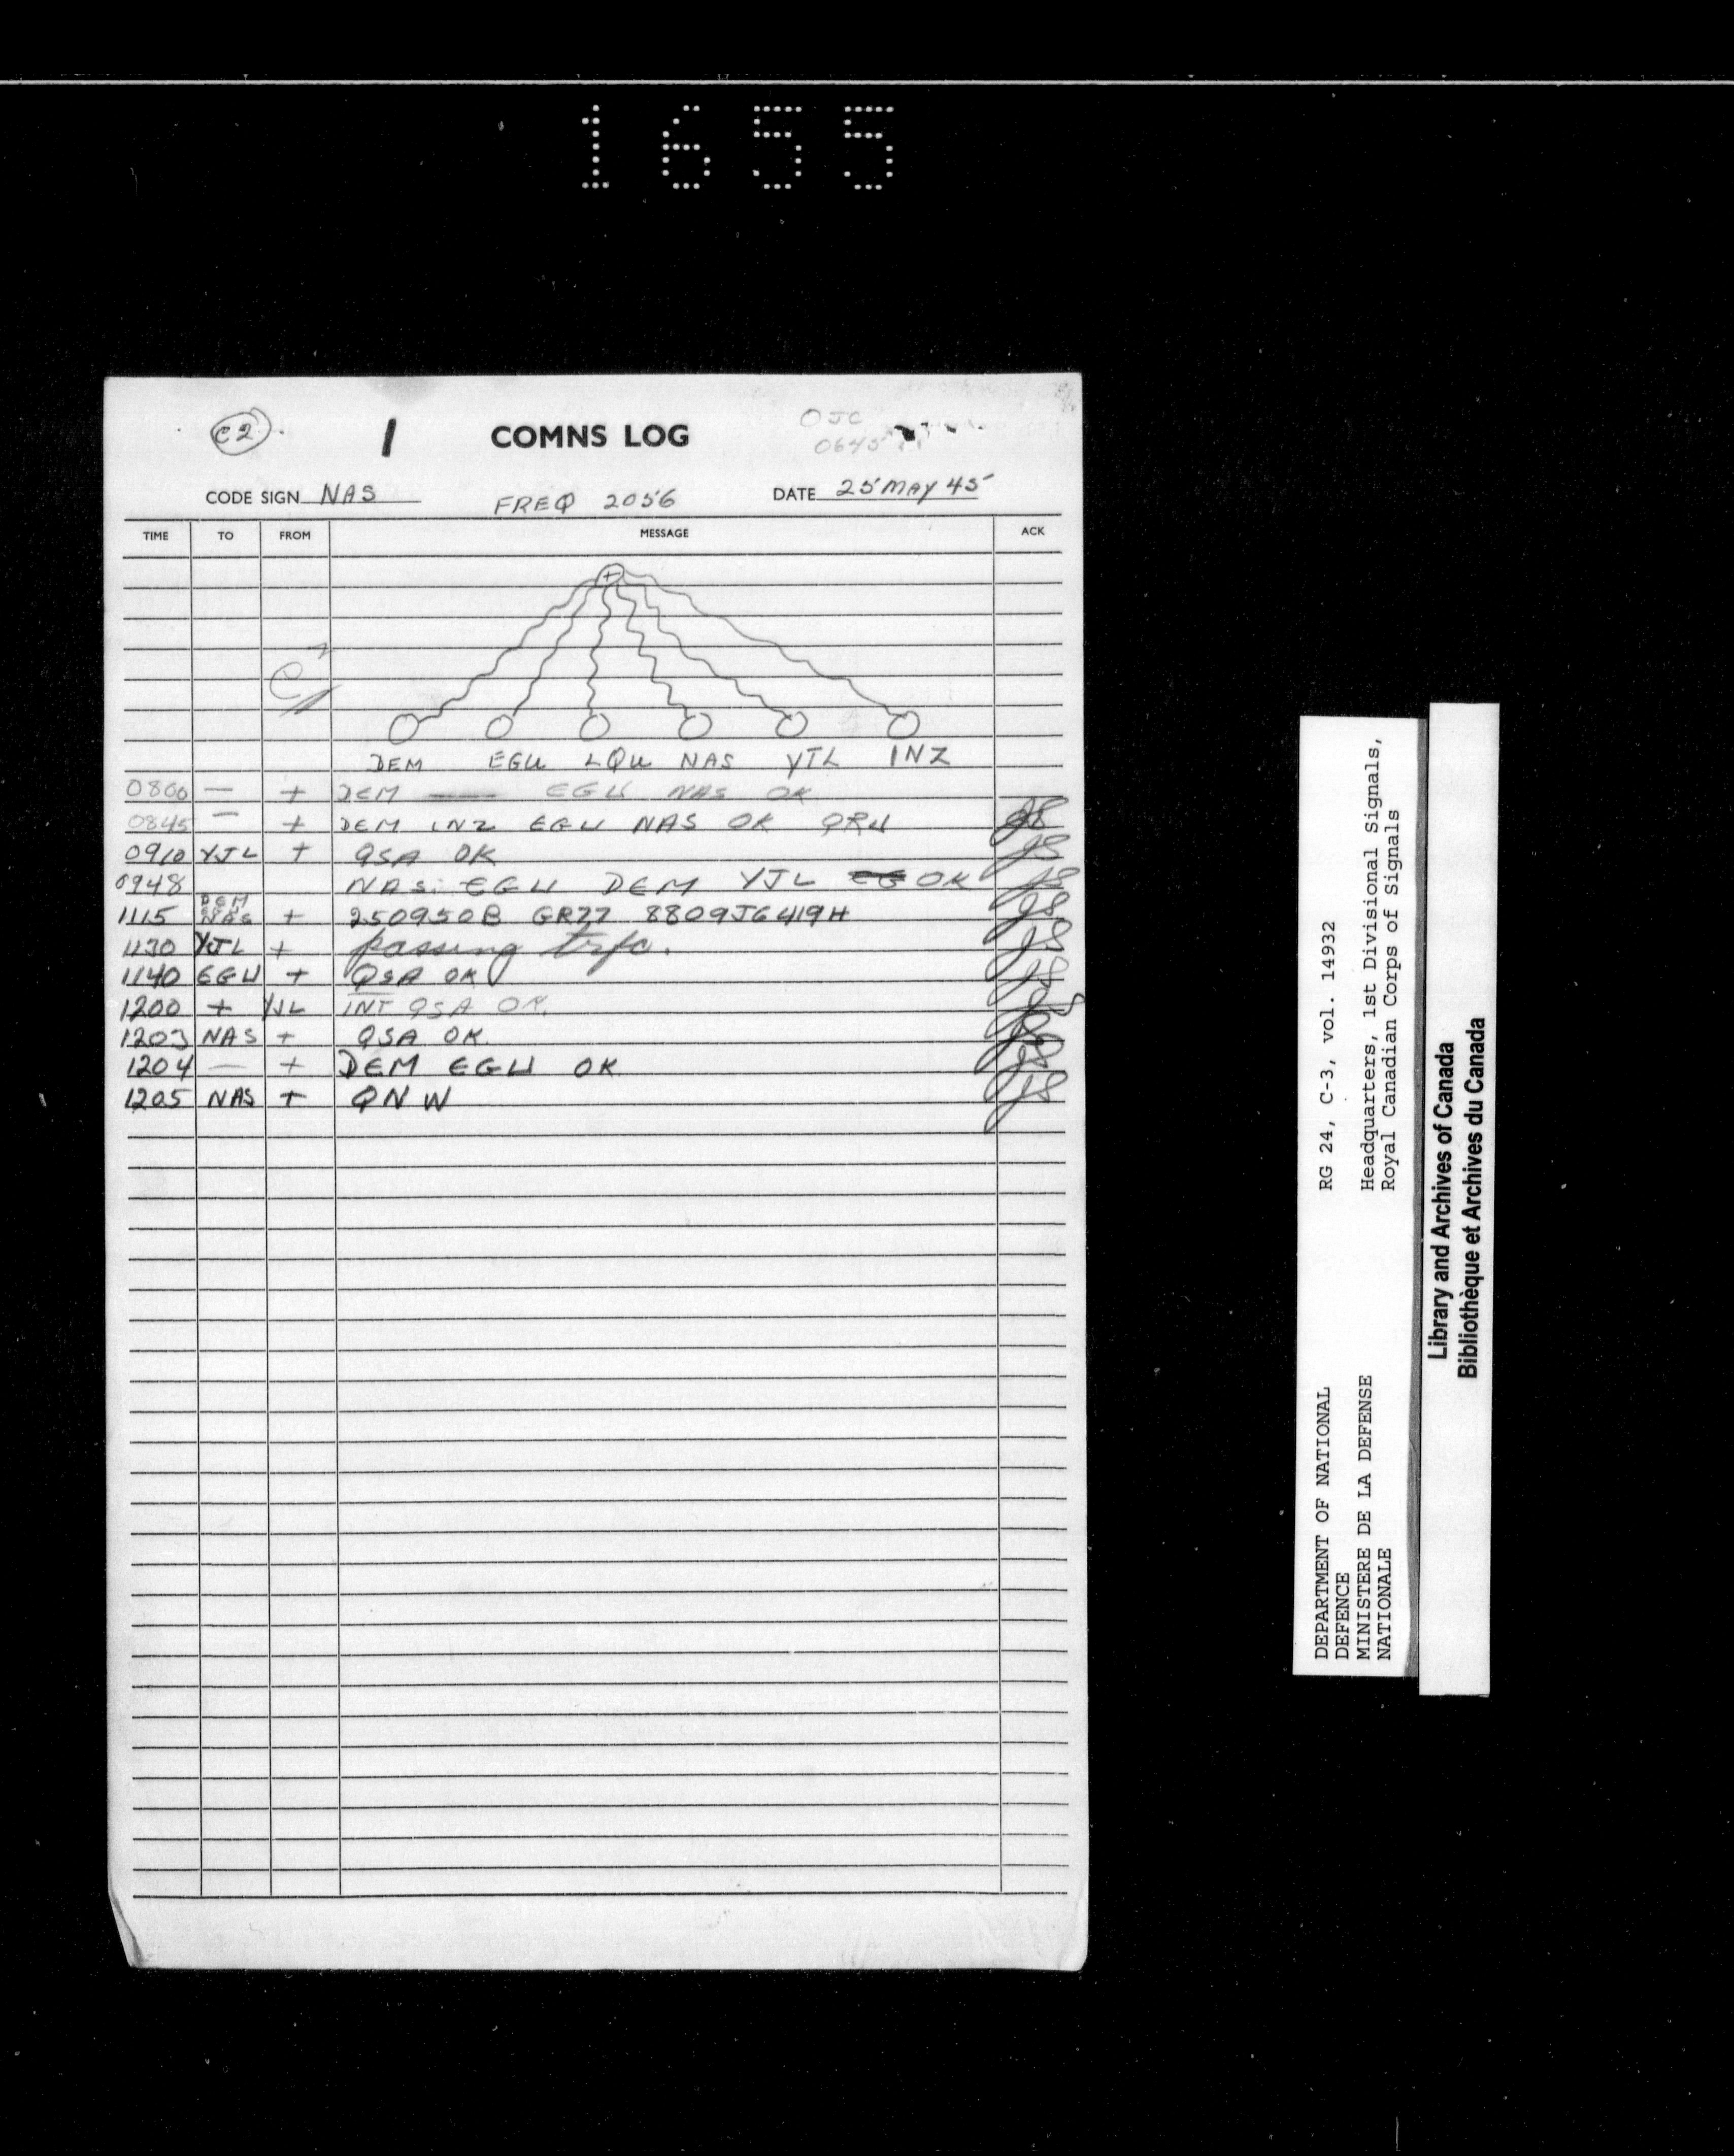 1655
C2 1 COMNS LOG OJC
0645
CODE SIGN NAS FREQ 2056 DATE 25 MAY 45
TIME TO FROM MESSAGE ACK
+
C2
DEM EGU LQU NAS YJL INZ
0800 — + DEM — EGU NAS OK
0845 — + DEM INZ EGU NAS OK QRU JS
0910 YJL + QSA OK JS
0948 NAS EGU DEM YJL EG OK JS
DEM
1115 NAS + 250950B GR77 8809JG419H JS
1130 YJL + passing trfc. JS
1140 EGU + QSA OK JS
1200 + YJL INT QSA OK. JS
1203 NAS + QSA OK JS
1204 — + DEM EGU OK JS
1205 NAS + QNW JS
RG 24, C-3, vol. 14932
Headquarters, 1st Divisional Signals,
Royal Canadian Corps of Signals
DEPARTMENT OF NATIONAL
DEFENCE
MINISTERE DE LA DEFENSE
NATIONALE
Library and Archives of Canada
Bibliothèque et Archives du Canada